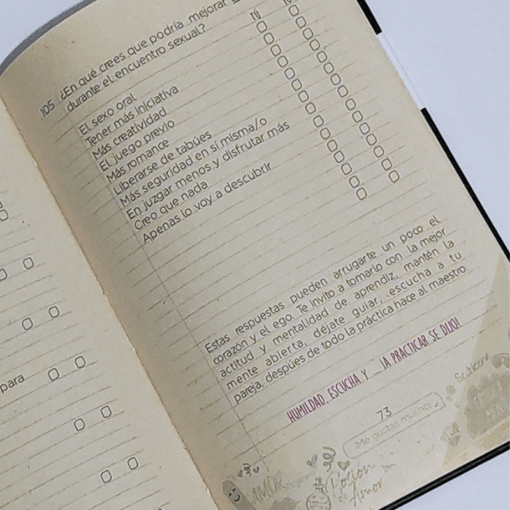 105. ¿En qué crees que podría mejorar
durante el encuentro sexual?
Tú
El sexo oral
Tener más iniciativa
Más creatividad
El juego previo
Más romance
Liberarse de tabúes
Más seguridad en sí misma/o
En juzgar menos y disfrutar más
Creo que nada
Apenas lo voy a descubrir
Estas respuestas pueden arrugarte un poco el
corazón y el ego. Te invito a tomarlo con la mejor
actitud y mentalidad de aprendiz, mantén la
mente abierta, déjate guiar, escucha a tu
pareja, después de todo la práctica hace al maestro.
HUMILDAD, ESCUCHA Y ... ¡A PRACTICAR SE DIJO!
73
¡Me gustas mucho!
AMOR
Poción
Amor
para